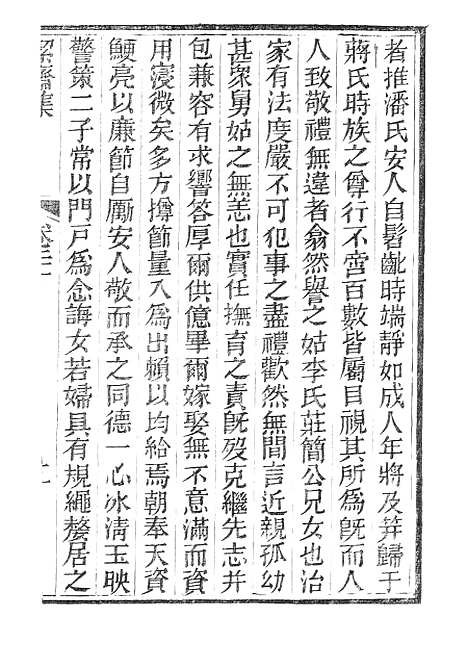 者推潘氏安人自髫齔時端静如成人年將及筓歸于
蔣氏時族之尊行不啻百數皆屬目視其所爲旣而人
人致敬禮無違者翕然譽之姑李氏莊簡公兄女也治
家有法度嚴不可犯事之盡禮歡然無間言近親孤幼
甚衆舅姑之無恙也實任撫育之責旣歿克繼先志并
包兼容有求響答厚爾供億畢爾嫁娶無不意滿而資
用寖微矣多方撙節量入爲出賴以均給焉朝奉天資
鯁亮以廉節自勵安人敬而承之同德一心冰清玉映
警策二子常以門戸爲念誨女若婦具有規繩嫠居之
絜齋集
卷二十一